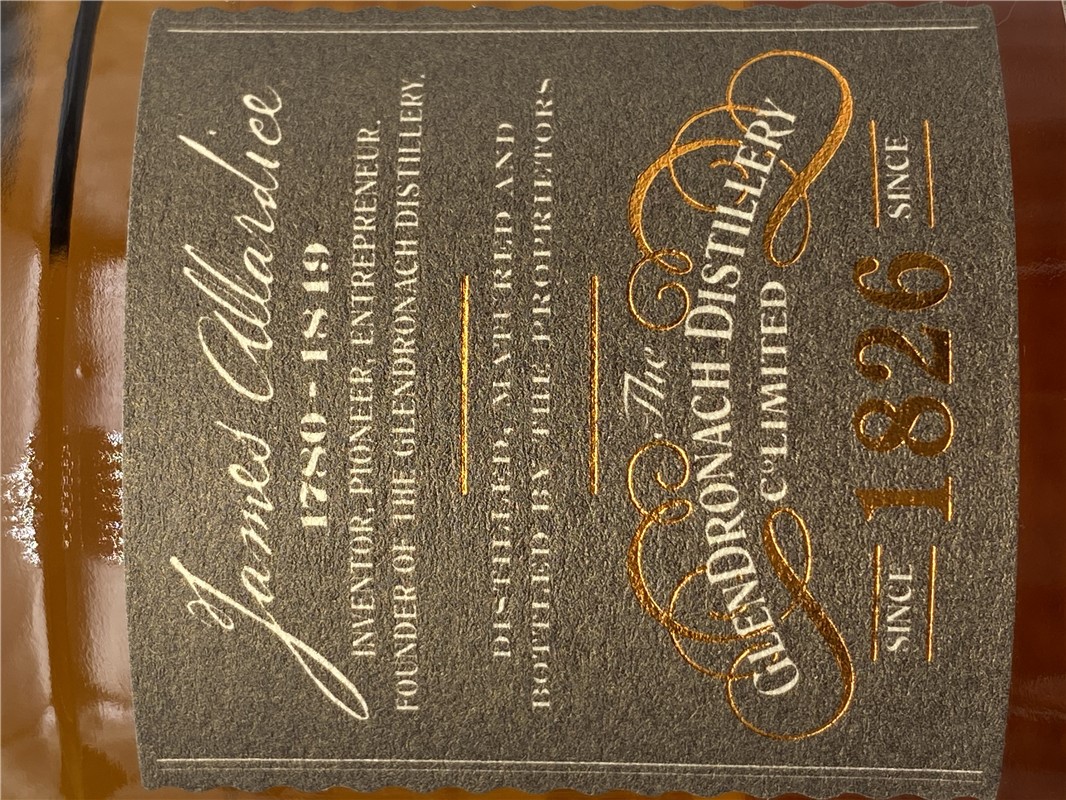 James Allardice
1780-1849
INVENTOR, PIONEER, ENTREPRENEUR.
FOUNDER OF THE GLENDRONACH DISTILLERY.
DISTILLED, MATURED AND
BOTTLED BY THE PROPRIETORS
The
GLENDRONACH DISTILLERY
Cº LIMITED
SINCE 1826 SINCE